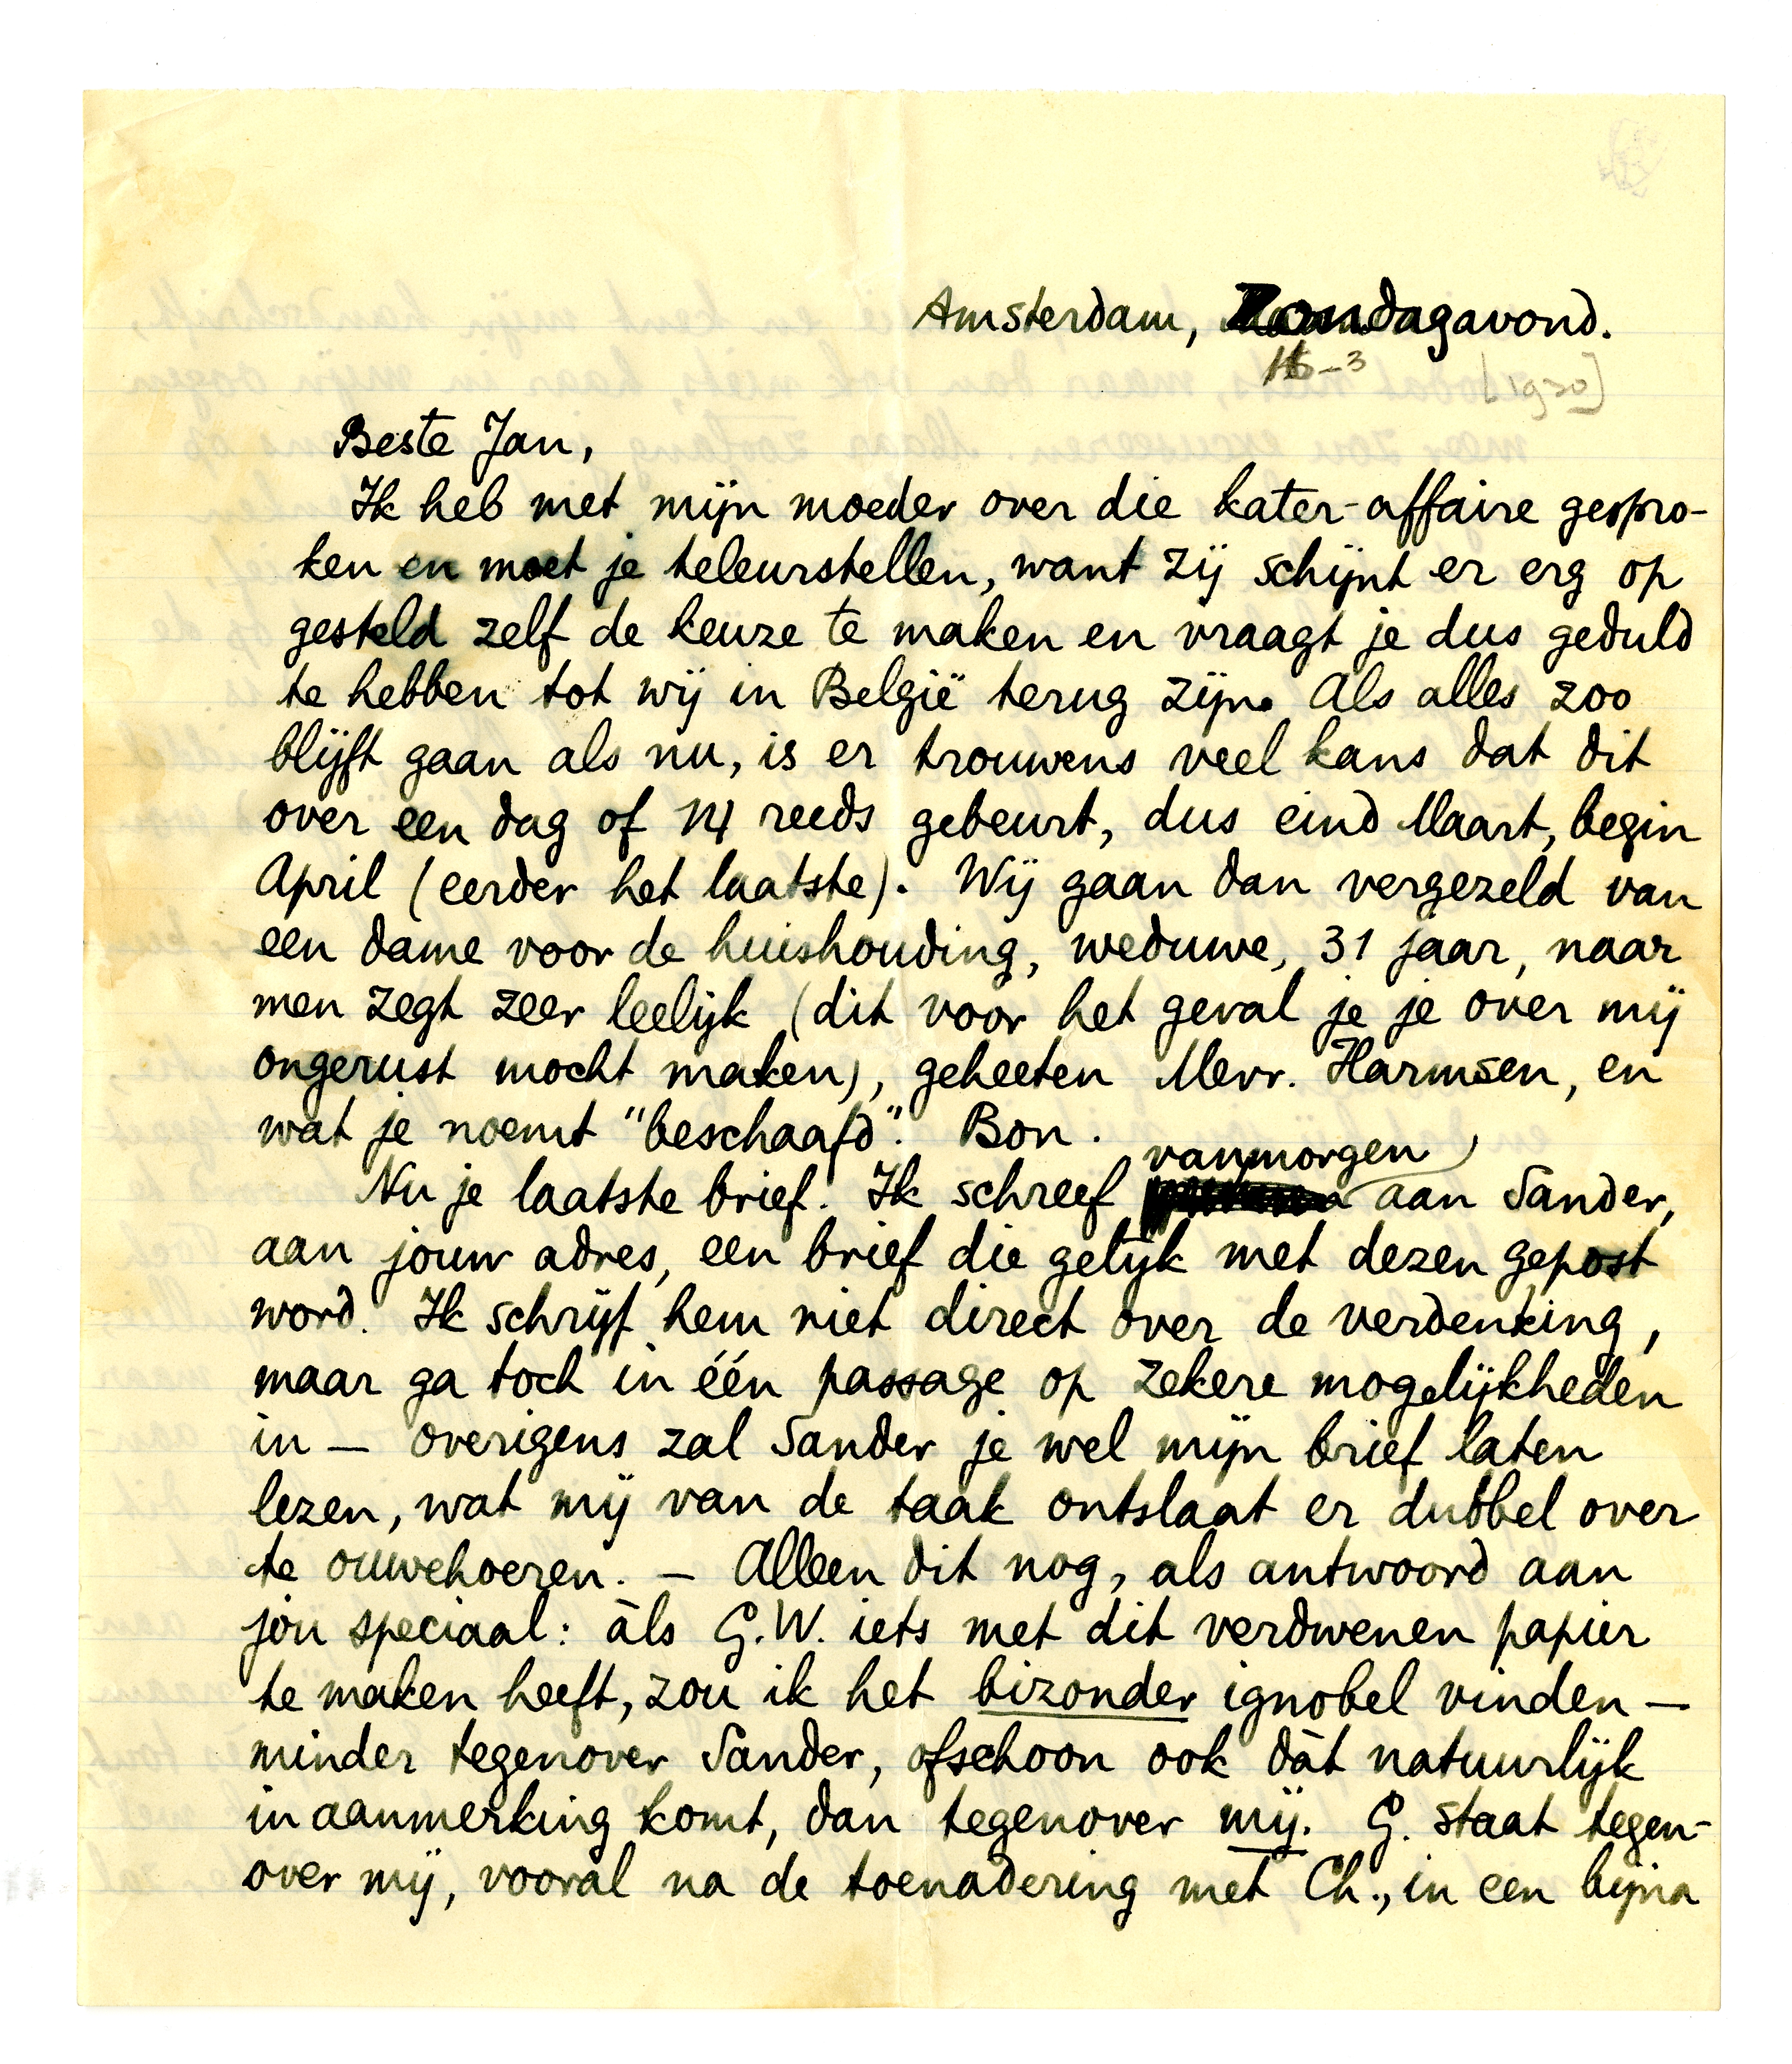 Amsterdam, Zondagavond.
16-3
[1930]
Beste Jan,
Ik heb met mijn moeder over die kater-affaire gespro-
ken en moet je teleurstellen, want zij schijnt er erg op
gesteld zelf de keuze te maken en vraagt je dus geduld
te hebben tot wij in België terug zijn. Als alles zoo
blijft gaan als nu, is er trouwens veel kans dat dit
over een dag of 14 reeds gebeurt, dus eind Maart, begin
April (eerder het laatste). Wij gaan dan vergezeld van
een dame voor de huishouding, weduwe, 31 jaar, naar
men zegt zeer leelijk (dit voor het geval je je over mij
ongerust mocht maken), geheeten Mevr. Harmsen, en
wat je noemt "beschaafd". Bon.
vanmorgen
Nu je laatste brief. Ik schreef aan Sander,
aan jouw adres, een brief die gelijk met dezen gepost
word. Ik schrijf hem niet direct over de verdenking,
maar ga toch in één passage op zekere mogelijkheden
in — overigens zal Sander je wel mijn brief laten
lezen, wat mij van de taak ontslaat er dubbel over
te ouwehoeren. — Alleen dit nog, als antwoord aan
jóu speciaal: àls G.W. iets met dit verdwenen papier
te maken heeft, zou ik het bizonder ignobel vinden —
minder tegenover Sander, ofschoon ook dàt natuurlijk
in aanmerking komt, dan tegenover mij. G. staat tegen-
over mij, vooral na de toenadering met Ch., in een bijna